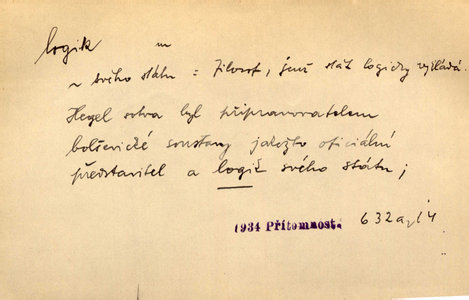 logik m
~ svého státu = filosof, jenž stát logicky vykládá.
Hegel sotva byl připravovatelem
bolševické soustavy jakožto oficiální
představitel a logik svého státu;
1934 Přítomnost. 632a, 14